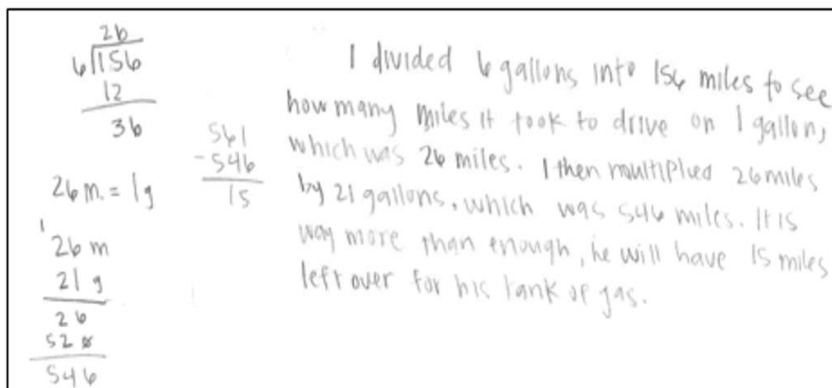 26
6)156
12
36
26 m = 1g
1
26 m
21 g
26
520
546
561
-546
15
I divided 6 gallons into 156 miles to see
how many miles it took to drive on 1 gallon,
which was 26 miles. I then multiplied 26 miles
by 21 gallons, which was 546 miles. It is
way more than enough, he will have 15 miles
left over for his tank of gas.